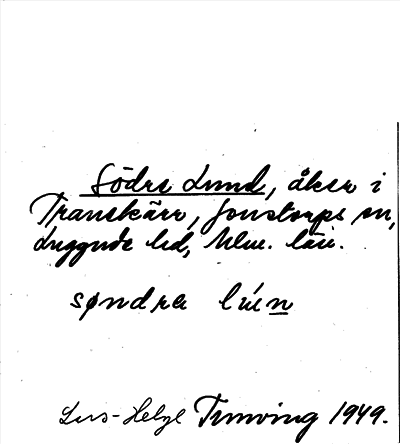 Södra Lund, åker i
Transkärr, Jonstorps sn,
Luggude hd, Mlm. län.
søndra lún
Lars-Helge Tunving 1949.